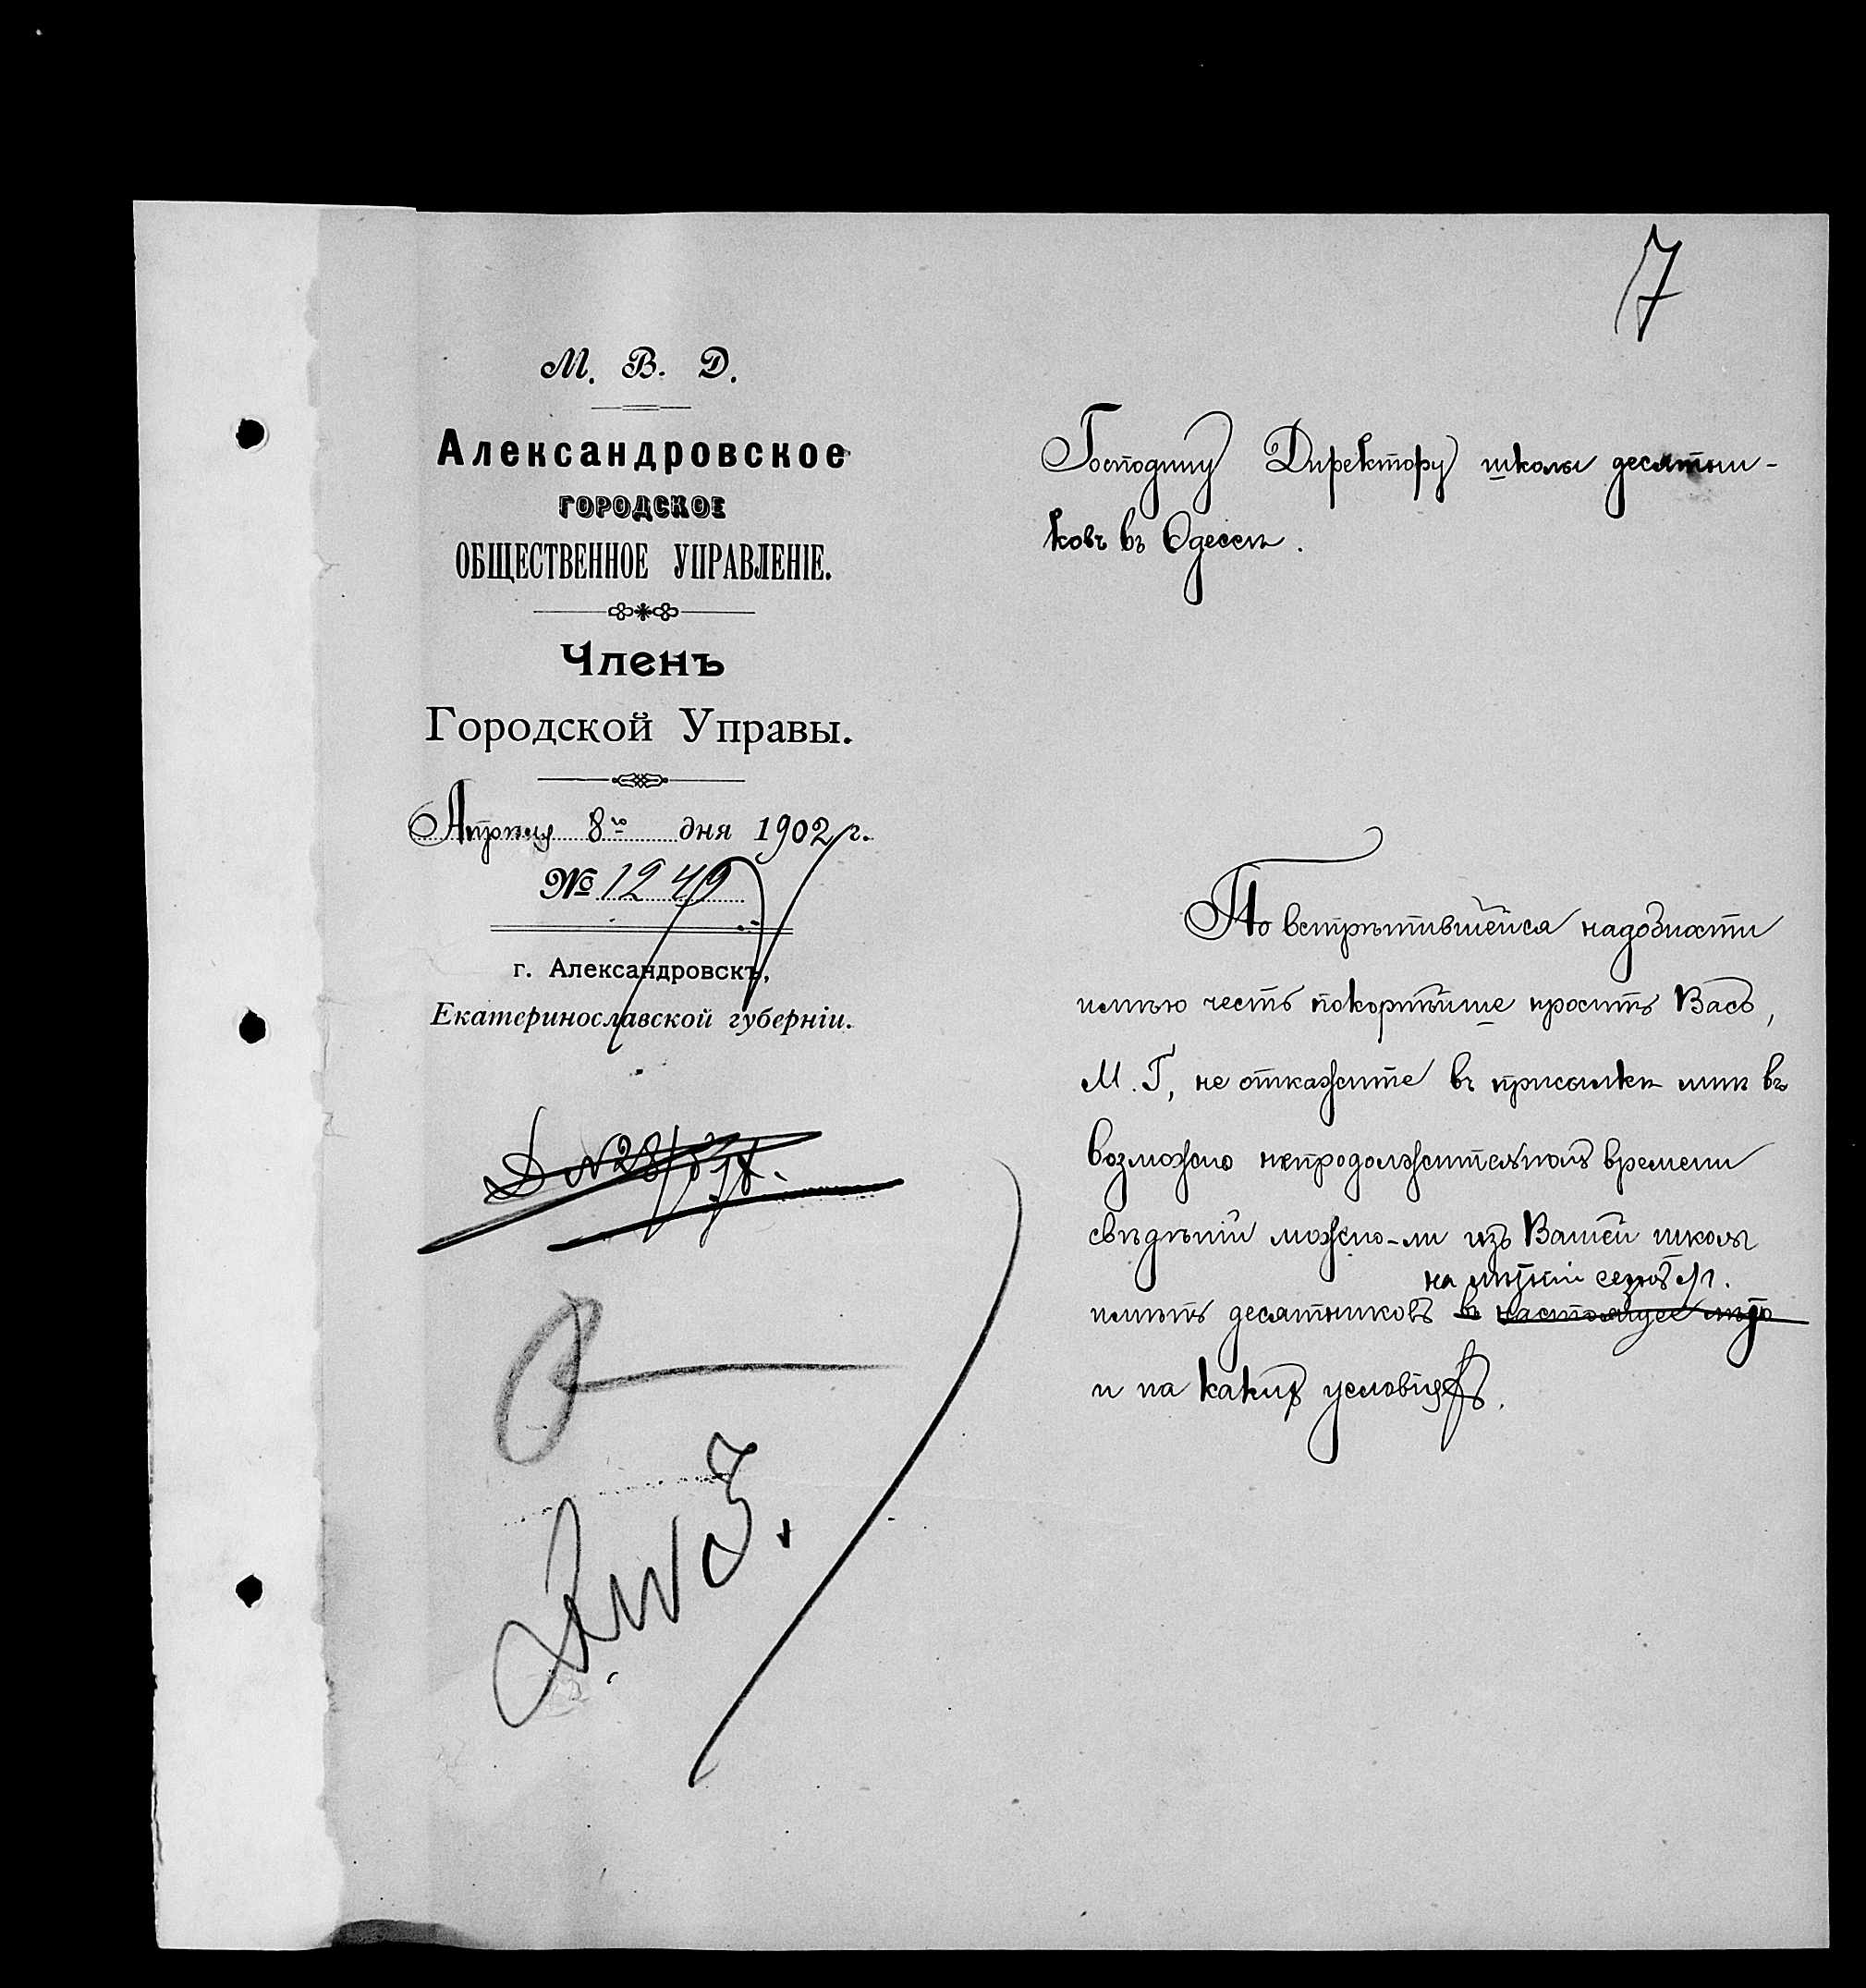 7
М. В. Д.
Александровское
ГОРОДСКОЕ
ОБЩЕСТВЕННОЕ УПРАВЛЕНІЕ.
Членъ
Городской Управы.
Апрѣля 8го дня 1902 г.
№ 1249
г. Александровскъ,
Екатеринославской губерніи.
Господину Директору школы десятни-
ковъ въ Одессѣ.
По встрѣтившейся надобности
имѣю честь покорнѣйше просить Васъ,
М. Г, не откажите въ присылкѣ мнѣ въ
возможно непродолжительномъ времени
свѣдѣній можно-ли изъ Вашей школы
на лѣтній сезонъ с/г.
имѣть десятниковъ въ настоящее лѣто
и на какихъ условіяхъ.